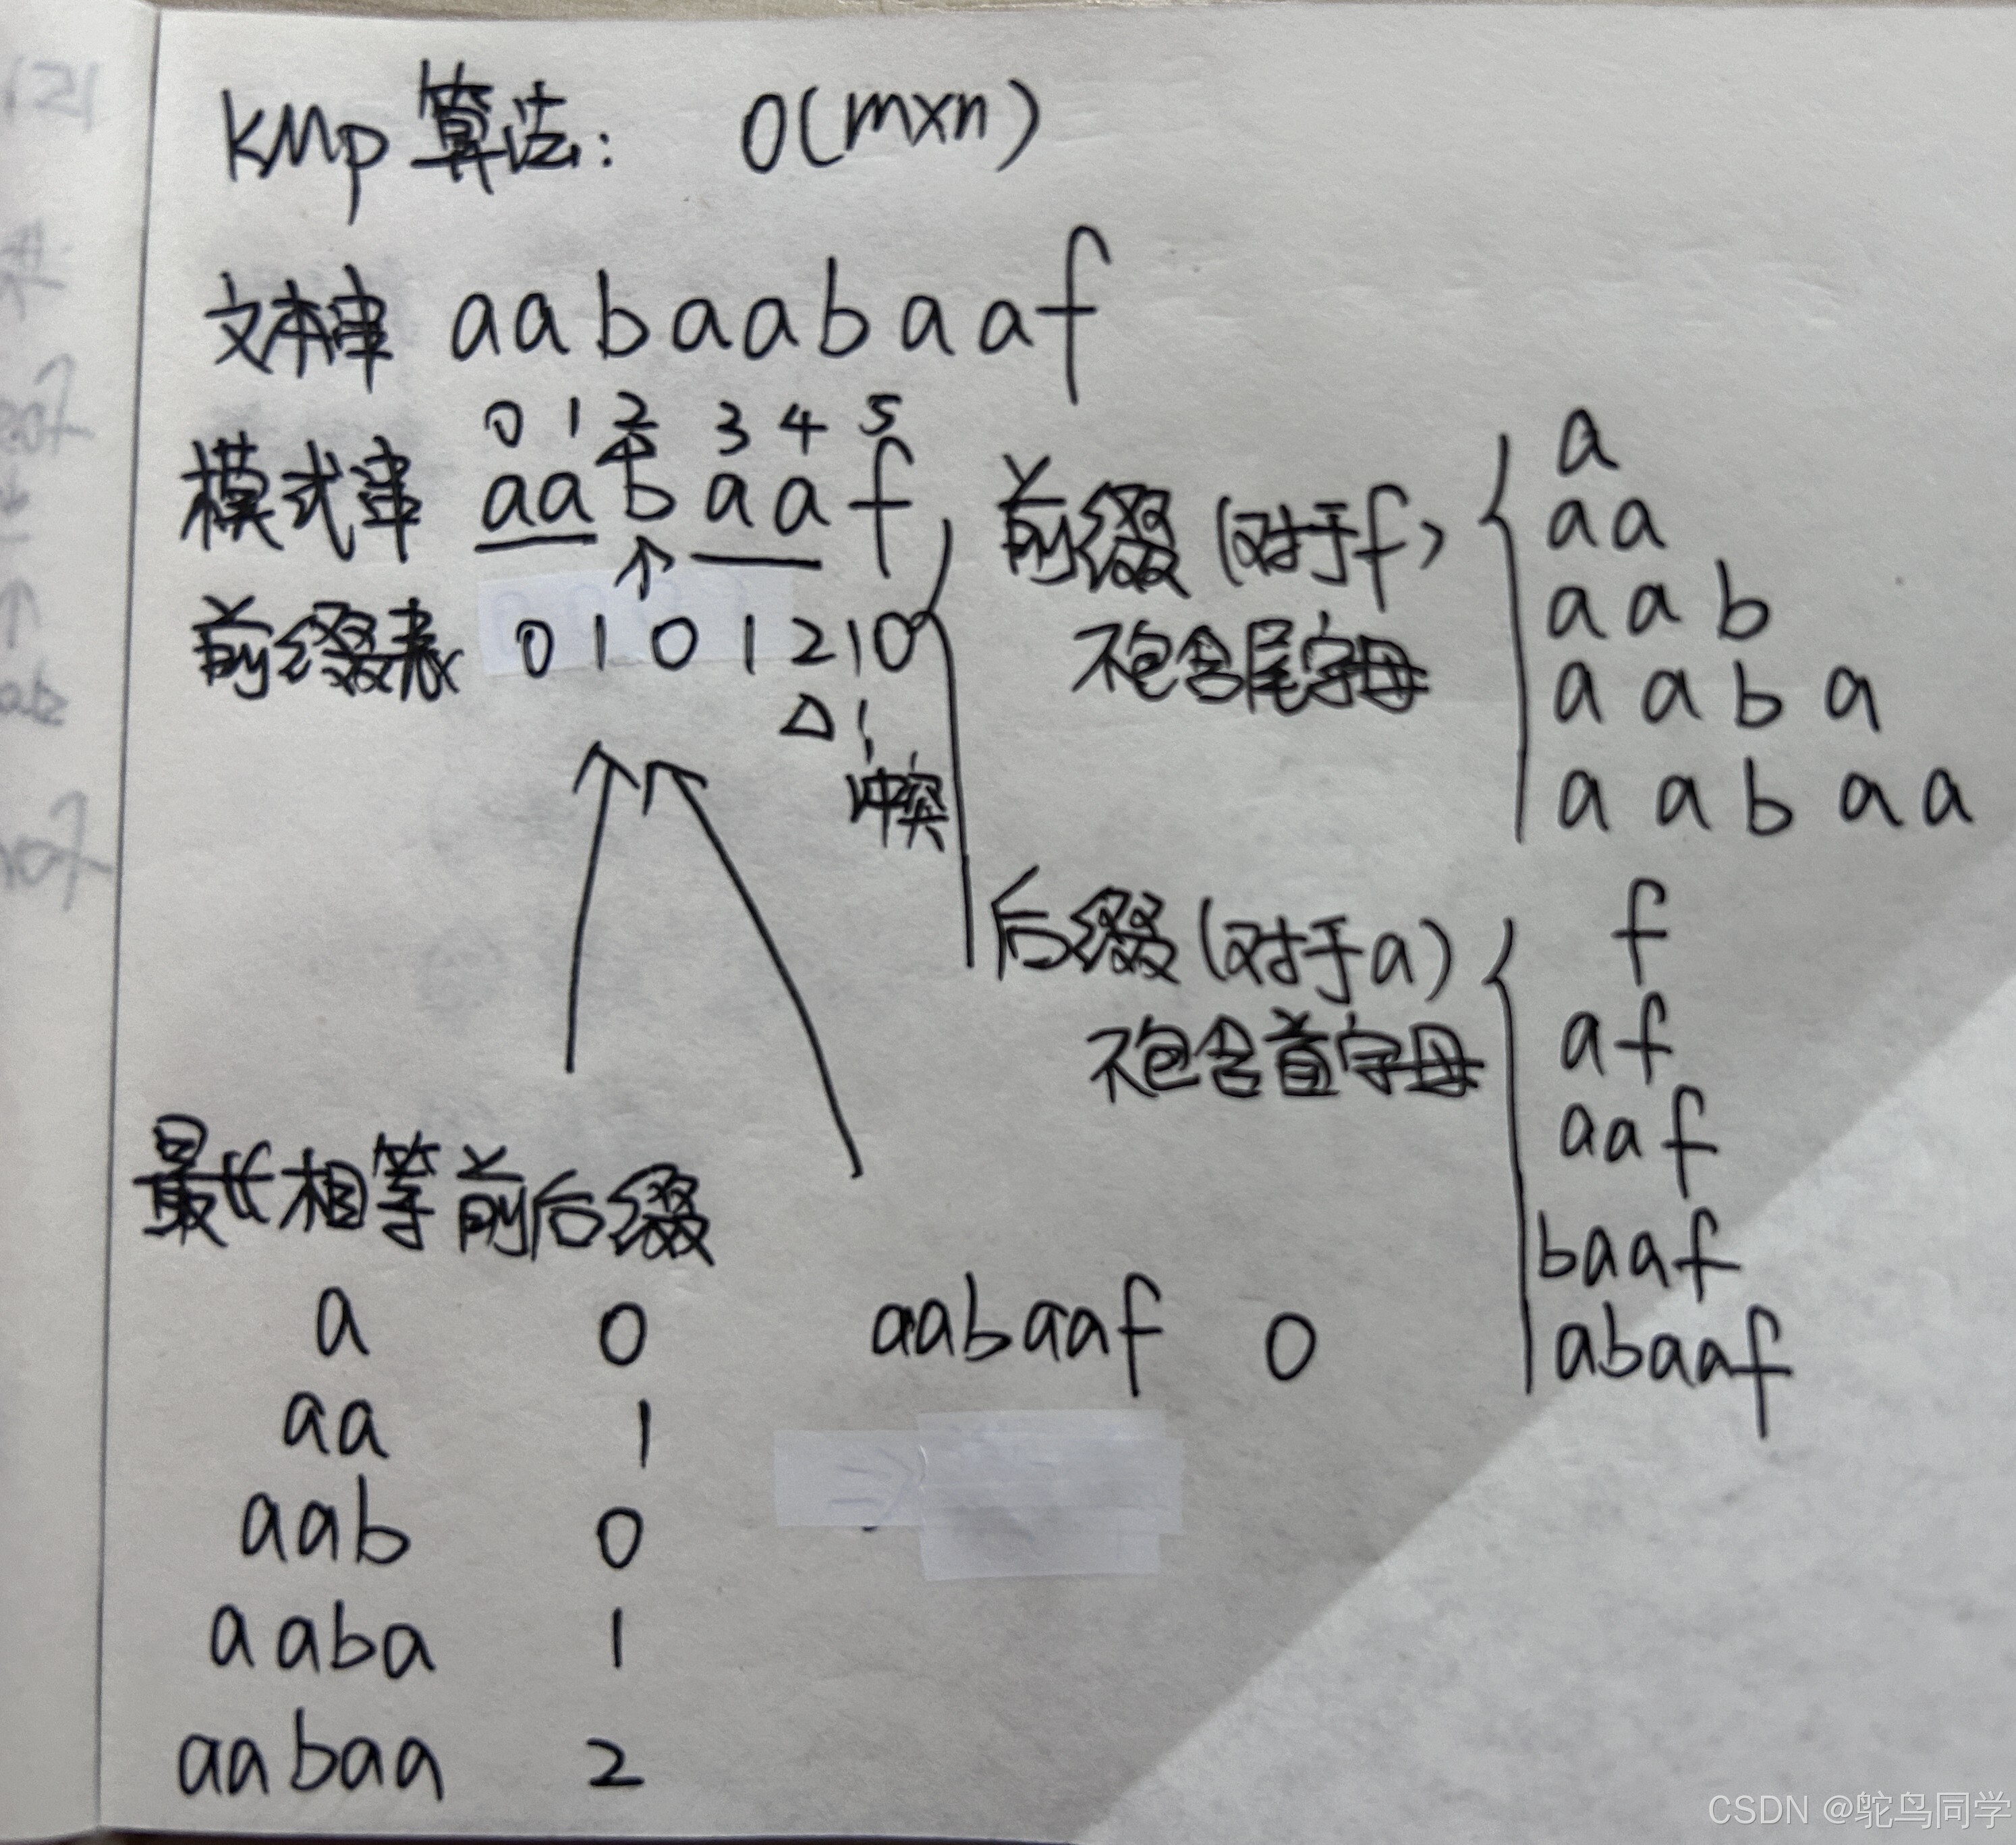 KMp 算法: O(m×n)
文本串 a a b a a b a a f
0 1 2 3 4 5
模式串 a a b a a f
前缀表 0 1 0 1 2 1 0
冲突
前缀 (对于f)
不包含尾字母
a
a a
a a b
a a b a
a a b a a
后缀 (对于a)
不包含首字母
f
a f
a a f
b a a f
a b a a f
最长相等前后缀
a 0
aa 1
aab 0
aaba 1
aabaa 2
aabaaf 0
CSDN @鸵鸟同学